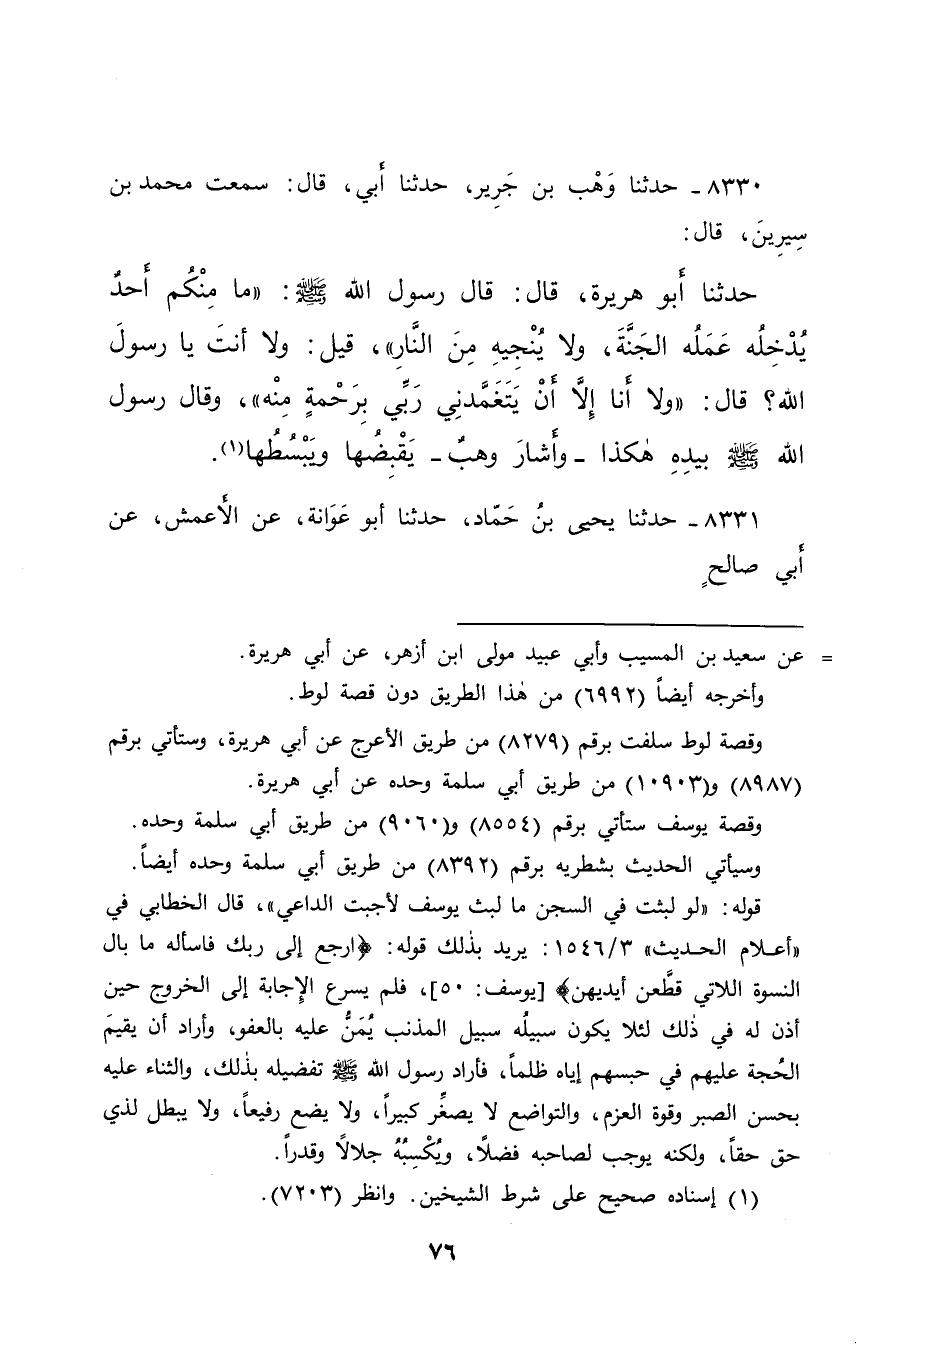 ٨٣٣٠ ـ حدثنا وَهْب بن جَرِير، حدثنا أَبي، قال: سمعت محمد بن
سِيرِينَ، قال:
حدثنا أَبو هريرة، قال: قال رسول الله ﷺ: «ما مِنْكُم أَحدٌ
يُدْخِلُه عَمَلُه الجَنَّةَ، ولا يُنْجِيهِ مِنَ النَّارِ»، قيل: ولا أنتَ يا رسولَ
الله؟ قال: «ولا أَنا إِلَّا أَنْ يَتَغَمَّدني رَبِّي بِرَحْمةٍ مِنْه»، وقال رسول
الله ﷺ بيدِهِ هٰكذا ـ وأَشارَ وهبٌ ـ يَقْبِضُها ويَبْسُطُها(١).
٨٣٣١ ـ حدثنا يحيى بنُ حَمّاد، حدثنا أبو عَوَانة، عن الأَعمش، عن
أَبي صالحٍ
= عن سعيد بن المسيب وأبي عبيد مولى ابن أزهر، عن أبي هريرة.
وأخرجه أيضاً (٦٩٩٢) من هٰذا الطريق دون قصة لوط.
وقصة لوط سلفت برقم (٨٢٧٩) من طريق الأعرج عن أبي هريرة، وستأتي برقم
(٨٩٨٧) و(١٠٩٠٣) من طريق أبي سلمة وحده عن أبي هريرة.
وقصة يوسف ستأتي برقم (٨٥٥٤) و(٩٠٦٠) من طريق أبي سلمة وحده.
وسيأتي الحديث بشطريه برقم (٨٣٩٢) من طريق أبي سلمة وحده أيضاً.
قوله: «لو لبثت في السجن ما لبث يوسف لأجبت الداعي»، قال الخطابي في
«أعلام الحديث» ١٥٤٦/٣: يريد بذٰلك قوله: ﴿ارجع إلى ربك فاسأله ما بال
النسوة اللاتي قطَّعن أيديهن﴾ [يوسف: ٥٠]، فلم يسرع الإِجابة إلى الخروج حين
أذن له في ذٰلك لئلا يكون سبيلُه سبيل المذنب يُمَنُّ عليه بالعفو، وأراد أن يقيمَ
الحُجة عليهم في حبسهم إياه ظلماً، فأراد رسول الله ﷺ تفضيله بذٰلك، والثناء عليه
بحسن الصبر وقوة العزم، والتواضع لا يصغِّر كبيراً، ولا يضع رفيعاً، ولا يبطل لذي
حق حقاً، ولكنه يوجب لصاحبه فضلاً، ويُكْسِبُهُ جلالاً وقدراً.
(١) إسناده صحيح على شرط الشيخين. وانظر (٧٢٠٣).
٧٦